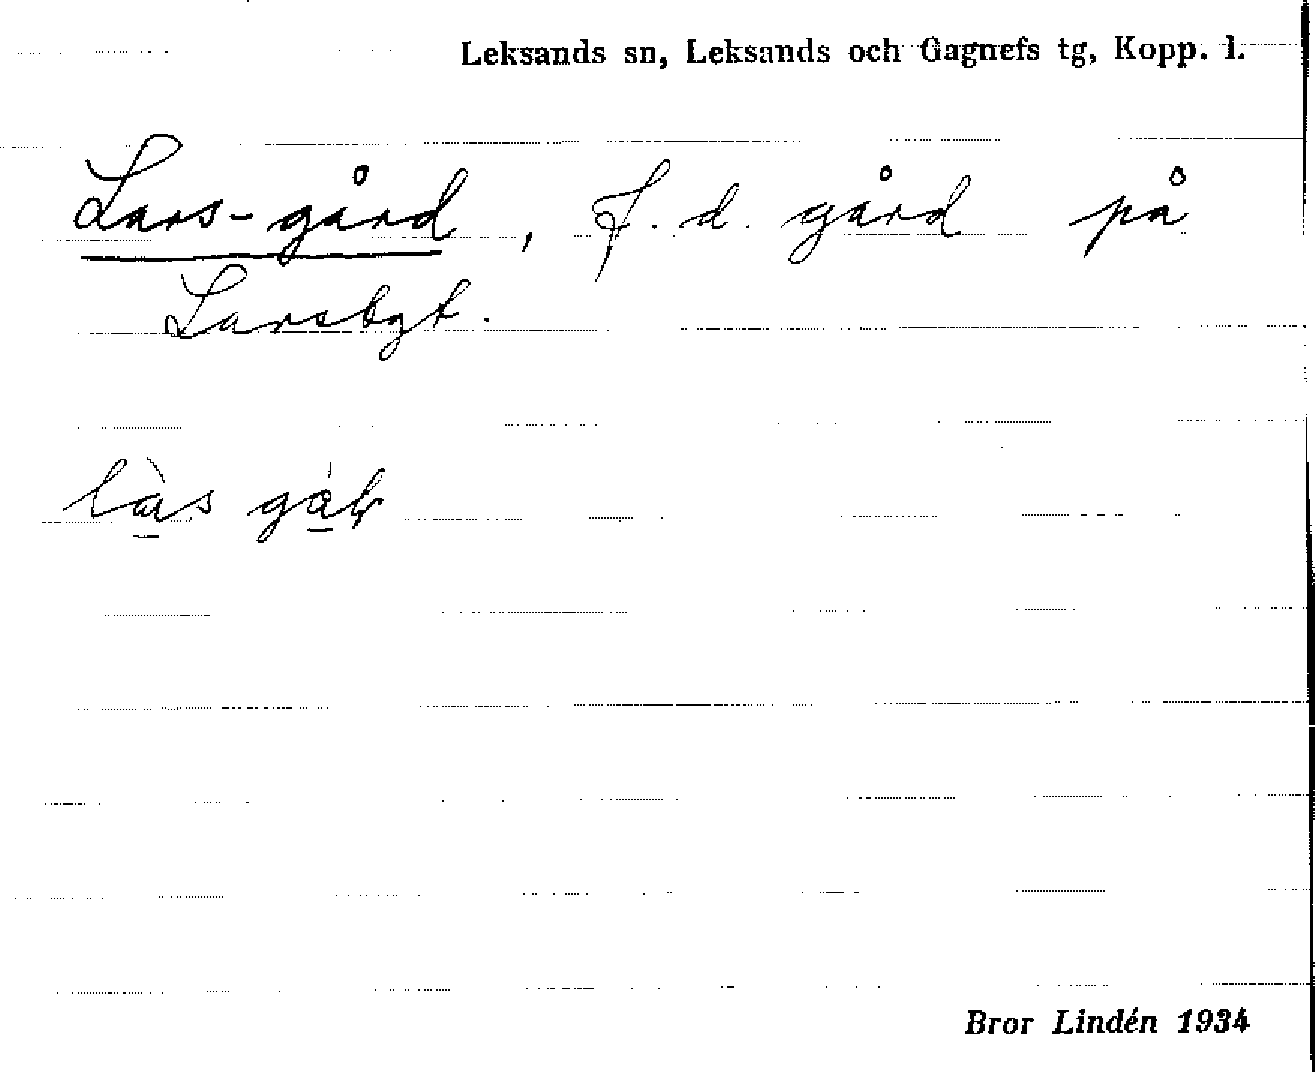 Leksands sn, Leksands och Gagnefs tg, Kopp. l.
Lars-gård, F. d. gård på
Larsbyt.
làs
Bror Lindén 1934